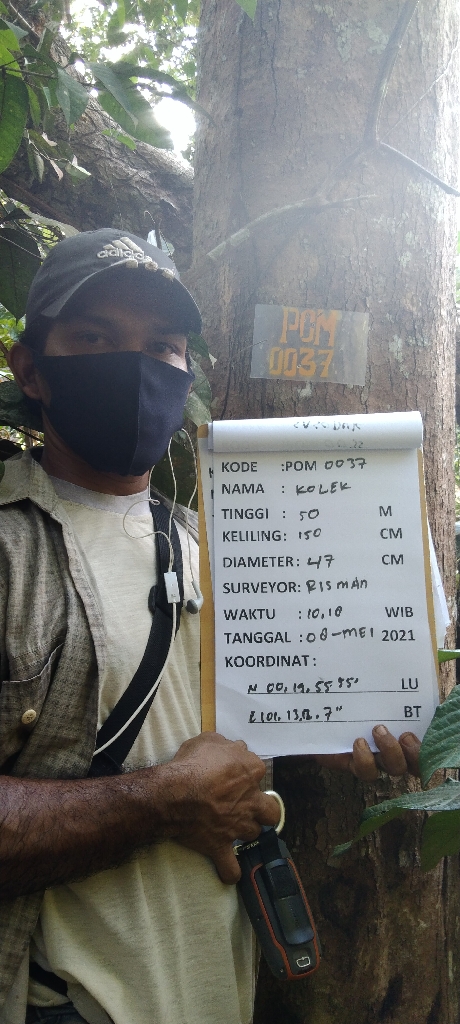 adidas
POM
0037
KODE :POM 0037
NAMA : KOLEK
TINGGI : 50 M
KELILING: 150 CM
DIAMETER: 47 CM
SURVEYOR: RISMAN
WAKTU : 10,10 WIB
TANGGAL : 08-MEI 2021
KOORDINAT:
N 00. 19. 55 95" LU
E 101. 13. 8. 7" BT